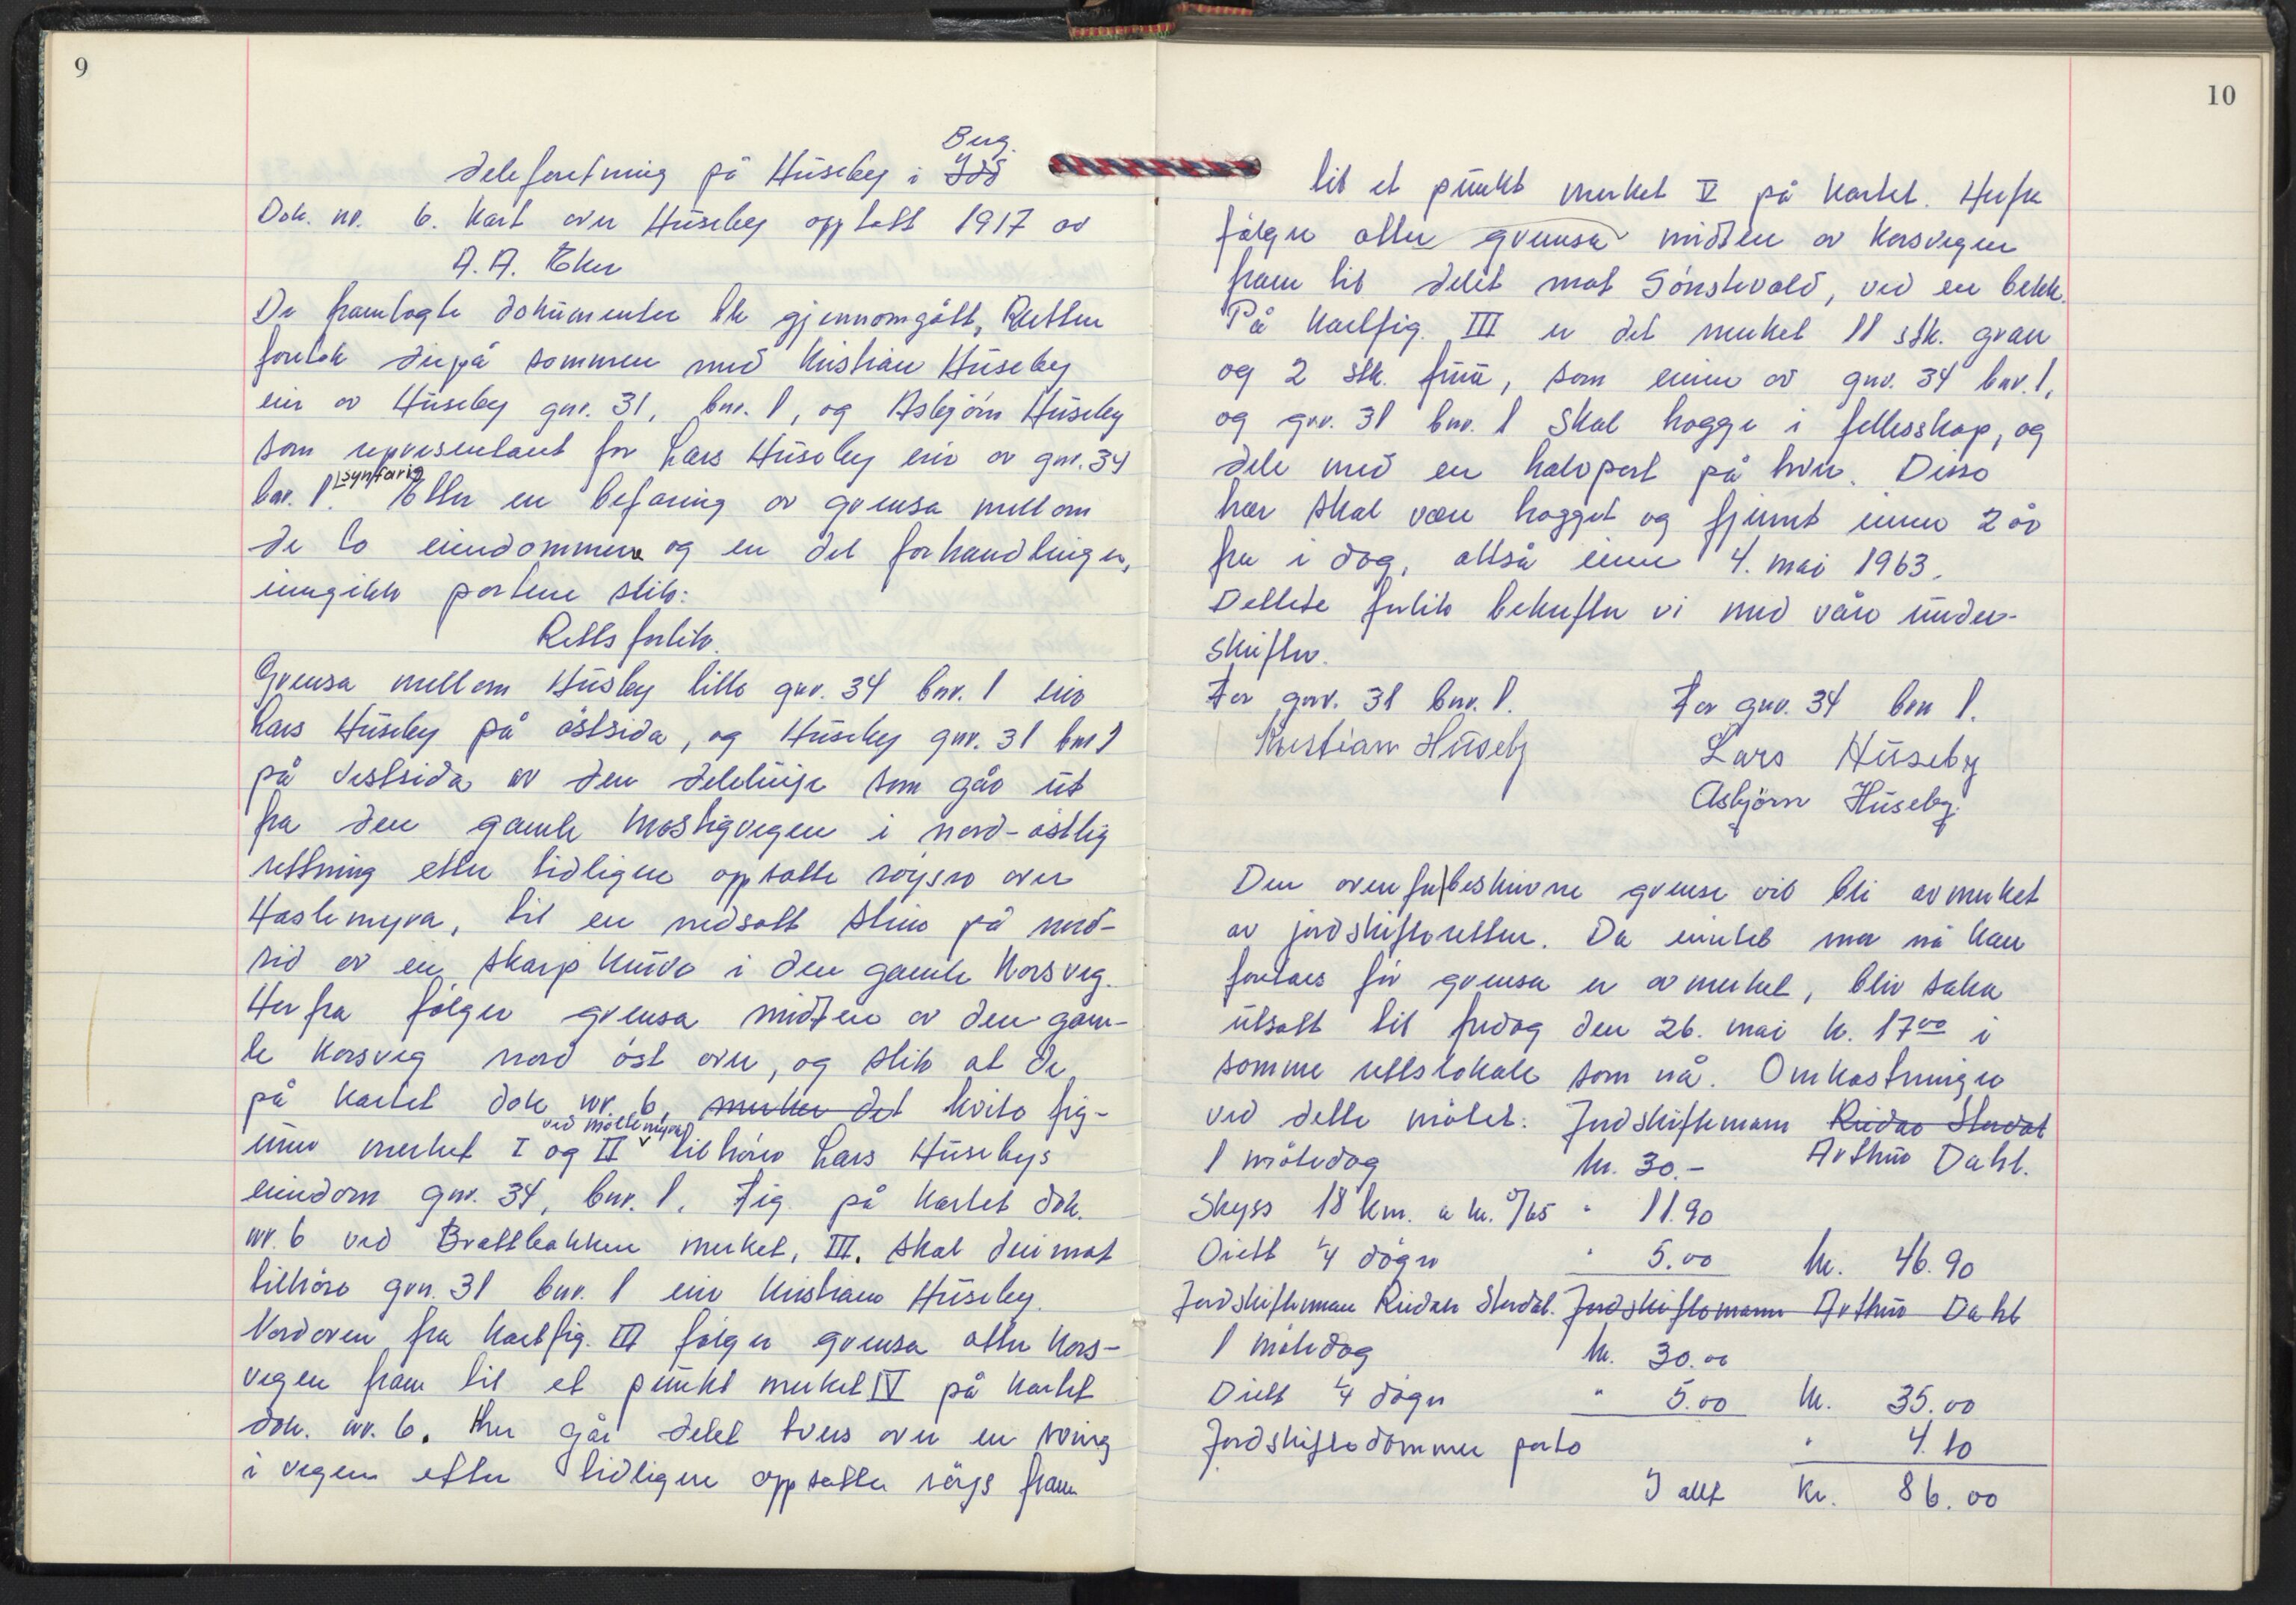 9
Berg.
Deleforretning på Huseby i Idd
Dok. nr. 6. Kart over Huseby opptatt 1917 av
A. A. Eker
De framlagte dokumenter ble gjennomgått, Retten
foretok derpå sammen med Kristian Huseby
eier av Huseby gnr. 31, bnr. 1, og Asbjörn Huseby
som representant for Lars Huseby eier av gnr. 34
bnr. 1. synfaring Etter en befaring av grensa mellom
de to eiendommene og en del forhandlinger,
inngikk partene slik:
Rettsforlik.
Grensa mellom Husby litle gnr. 34 bnr. 1 eier
Lars Huseby på östsida, og Huseby gnr. 31 bnr 1
på vestsida av den delelinje som går ut
fra den gamle vegen i nord-östlig
retning etter tidligere oppsatte röyser over
Haslemyra, til en nedsatt stein på nord-
sid av en skarp kurve i den gamle Korsveg.
Herfra fölger grensa midten av den gam-
le Korsveg nord öst over, og slik at de
på kartet dok nr. 6, merker det kvite fig-
urer merket I og II ved möllemyra tilhörer Lars Husebys
eiendom gnr. 34, bnr. 1. Fig. på kartet dok.
nr. 6 ved Brattbakken merket, III. skal derimot
tilhöre gnr. 31 bnr. 1 eier Kristian Huseby.
Nordover fra kartfig. III fölger grensa atter Kors-
vegen fram til et punkt merket IV på kartet
dok. nr. 6. Her går delet tvers over en sving
i vegen etter tidligere oppsatte röys fram
10
til et punkt merket V på kartet. Herfra
fölger atter grensa midten av Korsvegen
fram til delet mot Sönstevold, ved en bekk.
På kartfig. III er det merket 11 stk. gran
og 2 stk. furu, som eieren av gnr. 34 bnr. 1,
og gnr. 31 bnr. 1 skal hogge i fellesskap, og
dele med en halvpart på hver. Disse
trær skal være hogget og fjernet innen 2 år
fra i dag, altså innen 4. mai 1963.
Dette forlik bekrefter vi med våre under-
skrifter.
For gnr. 31 bnr. 1.
For gnr. 34 bnr 1.
Kristian Huseby
Lars Huseby
Asbjörn Huseby.
Den ovenfor beskrevne grense vil bli avmerket
av jordskifteretten. Da intet mer nå kan
foretaes för grensa er avmerket, blir saka
utsatt til fredag den 26. mai kl. 17 00 i
samme rettslokale som nå. Omkostninger
ved dette mötet: Jordskiftemann Reidar Stordal
Arthur Dahl.
1 mötedag kr. 30.-
Skyss 18 km. a kr. 0/65 " 11.90
Diett 1/4 dögn " 5.00 kr. 46.90
Jordskiftemann Reidar Stordal. Jordskiftemann Arthur Dahl
1 mötedag kr. 30.00
Diett 1/4 dögn " 5.00 kr. 35.00
Jordskiftedommer porto " 4.10
I alt kr. 86.00